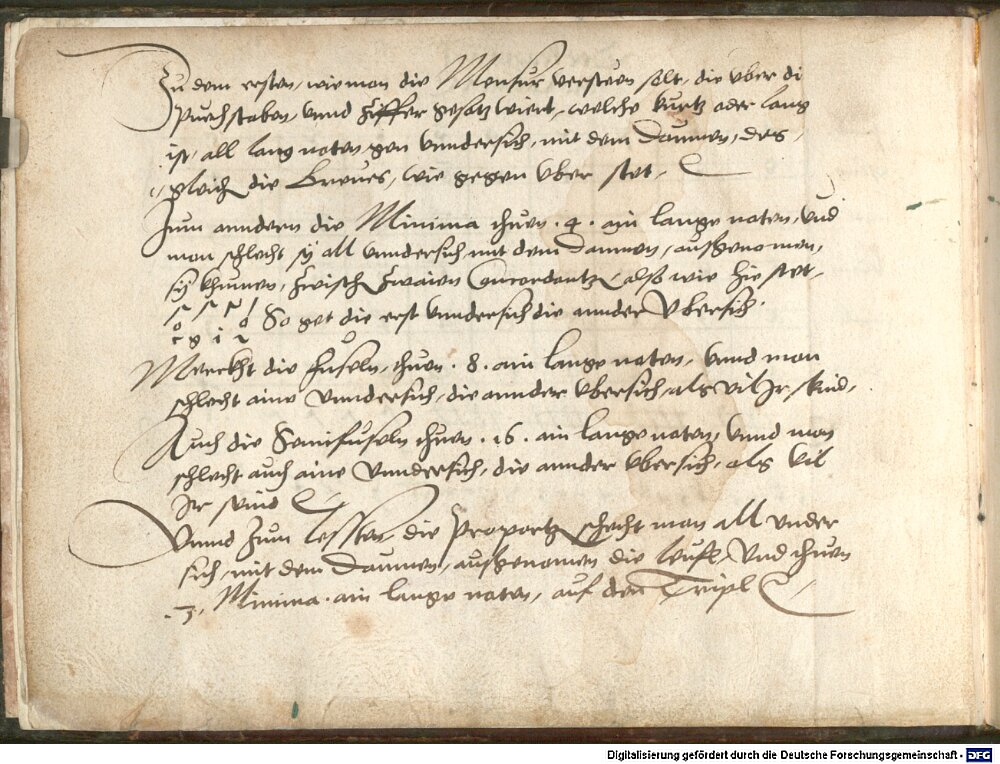 Zu dem ersten, wie man die Mensur versteen solt, die vber di
Puechstaben vnnd Ziffer gesatz wiert, welche kurtz oder lang
ist, all lang noten gen vnndersich, mit dem Daumen, des
gleich die Breues, wie gegen vber stet,
Zum anndern die Minima thuen .4. ain lange noten, vnd
man schlecht sy all vnndersich mit dem Daumen, ausgenomen,
sy khumen, zwischn zwaien Concordantz, also wie hie stet,
So get die erst vnndersich die annder Vbersich.
c g i 2
Merckht die Fuseln, thuen .8. ain lange noten, vnnd man
schlecht aine vnndersich, die annder vbersich, als vil Jr, sind,
Auch die Semifuseln thuen .16. ain lange noten, vnnd man
schlecht auch aine vnndersich, die annder vbersich, als vil
Jr seind
Vnnd Zum lessten die Proportz schecht man all vnder
sich, mit dem Daumen, ausgenomen die leuff, Vnd thuen
.3. Minima. ain lange noten, auf den Tripl
Digitalisierung gefördert durch die Deutsche Forschungsgemeinschaft - DFG